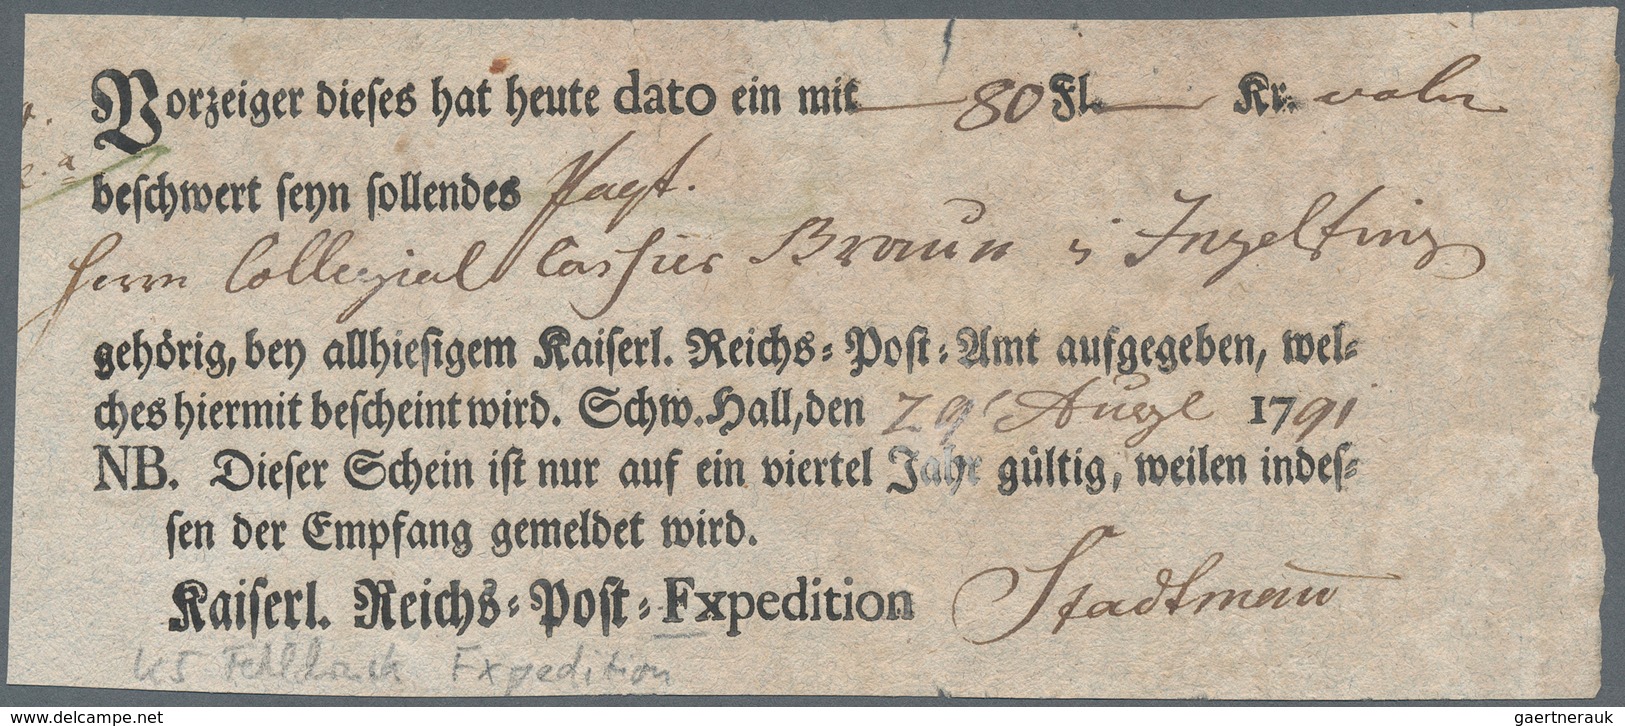 Vorzeiger dieses hat heute dato ein mit 80 Fl. Kr.
beschwert seyn sollendes Paqt.
Herrn Collegial Cassier Braun i Ingelfing
gehörig, bey allhiesigem Kaiserl. Reichs-Post-Amt aufgegeben, wel-
ches hiermit bescheint wird. Schw. Hall, den 29t Augl 1791
NB. Dieser Schein ist nur auf ein viertel Jahr gültig, weilen indes-
sen der Empfang gemeldet wird.
Kaiserl. Reichs-Post-Fxpedition Stadtmann
Fehldruck Fxpedition
www.delcampe.net
gaertnerauk